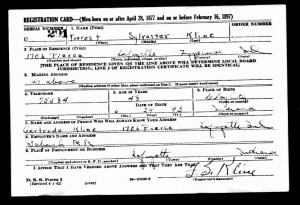 REGISTRATION CARD—(Men born on or after April 28, 1877 and on or before February 16, 1897)
SERIAL NUMBER
1. NAME (Print)
ORDER NUMBER
Forrest Sylvester Kline
2. PLACE OF RESIDENCE (Print)
1706 Pierce Lafayette Tippecanoe Ind
(THE PLACE OF RESIDENCE GIVEN ON THE LINE ABOVE WILL DETERMINE LOCAL BOARD
JURISDICTION; LINE 2 OF REGISTRATION CERTIFICATE WILL BE IDENTICAL)
3. MAILING ADDRESS
as above
4. TELEPHONE
5. AGE IN YEARS
6. PLACE OF BIRTH
48
Indiana
7. NAME AND ADDRESS OF PERSON WHO WILL ALWAYS KNOW YOUR ADDRESS
Gertrude Kline 1706 Pierce Lafayette Ind
8. EMPLOYER'S NAME AND ADDRESS
Wabash R.R.
9. PLACE OF EMPLOYMENT OR BUSINESS
Lafayette Indiana
I AFFIRM THAT I HAVE VERIFIED ABOVE ANSWERS AND THAT THEY ARE TRUE.
D. S. S. Form 1
(Revised 4-1-42)
Kline